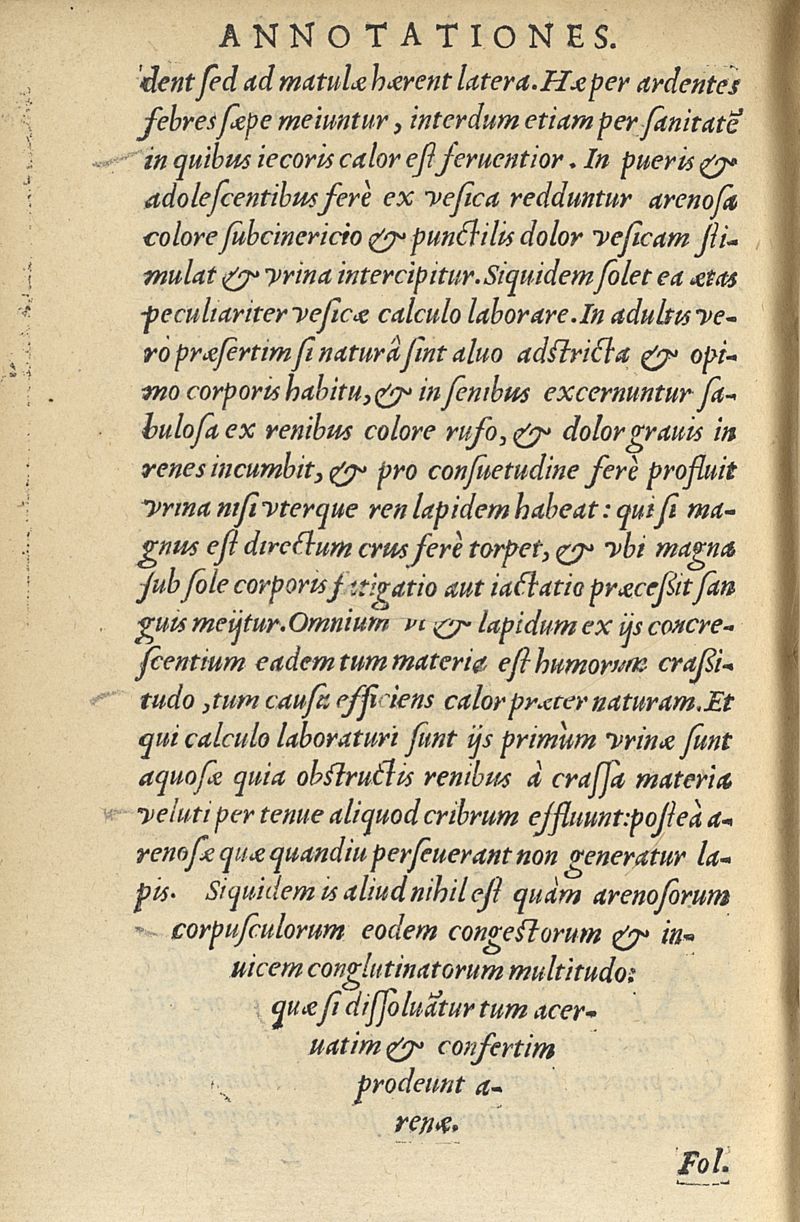 ANNOTATIONES.
dent sed ad matulæ hærent latera. Hæ per ardentes
febres sæpe meiuntur, interdum etiam per sanitatē
in quibus iecoris calor est feruentior. In pueris &
adolescentibus ferè ex vesica redduntur arenosa
colore subcinericio & punctilis dolor vesicam sti-
mulat & vrina intercipitur. Siquidem solet ea ætas
peculiariter vesicæ calculo laborare. In adultis ve-
rò præsertim si naturâ sint aluo adstricta & opi-
mo corporis habitu, & in senibus excernuntur sa-
bulosa ex renibus colore rufo, & dolor grauis in
renes incumbit, & pro consuetudine ferè profluit
vrina nisi vterque ren lapidem habeat: qui si ma-
gnus est directum crus ferè torpet, & vbi magna
sub sole corporis fatigatio aut iactatio præcessit san
guis meijtur. Omnium & lapidum ex ijs concre-
scentium eadem tum materia est humorum crassi-
tudo, tum causa efficiens calor præter naturam. Et
qui calculo laboraturi sunt ijs primùm vrinæ sunt
aquosæ quia obstructis renibus à crassa materia
veluti per tenue aliquod cribrum effluunt: posteà a-
renosæ quæ quandiu perseuerant non generatur la-
pis. Siquidem is aliud nihil est quàm arenosorum
corpusculorum eodem congestorum & in-
uicem conglutinatorum multitudo:
quæ si dissoluātur tum acer-
uatim & confertim
prodeunt a-
renæ.
Fol.